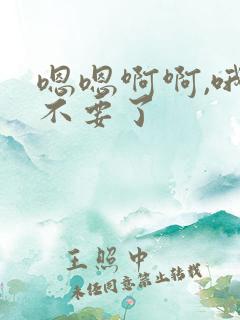 嗯嗯啊啊,哦
不要了
王照中
未经同意禁止转载